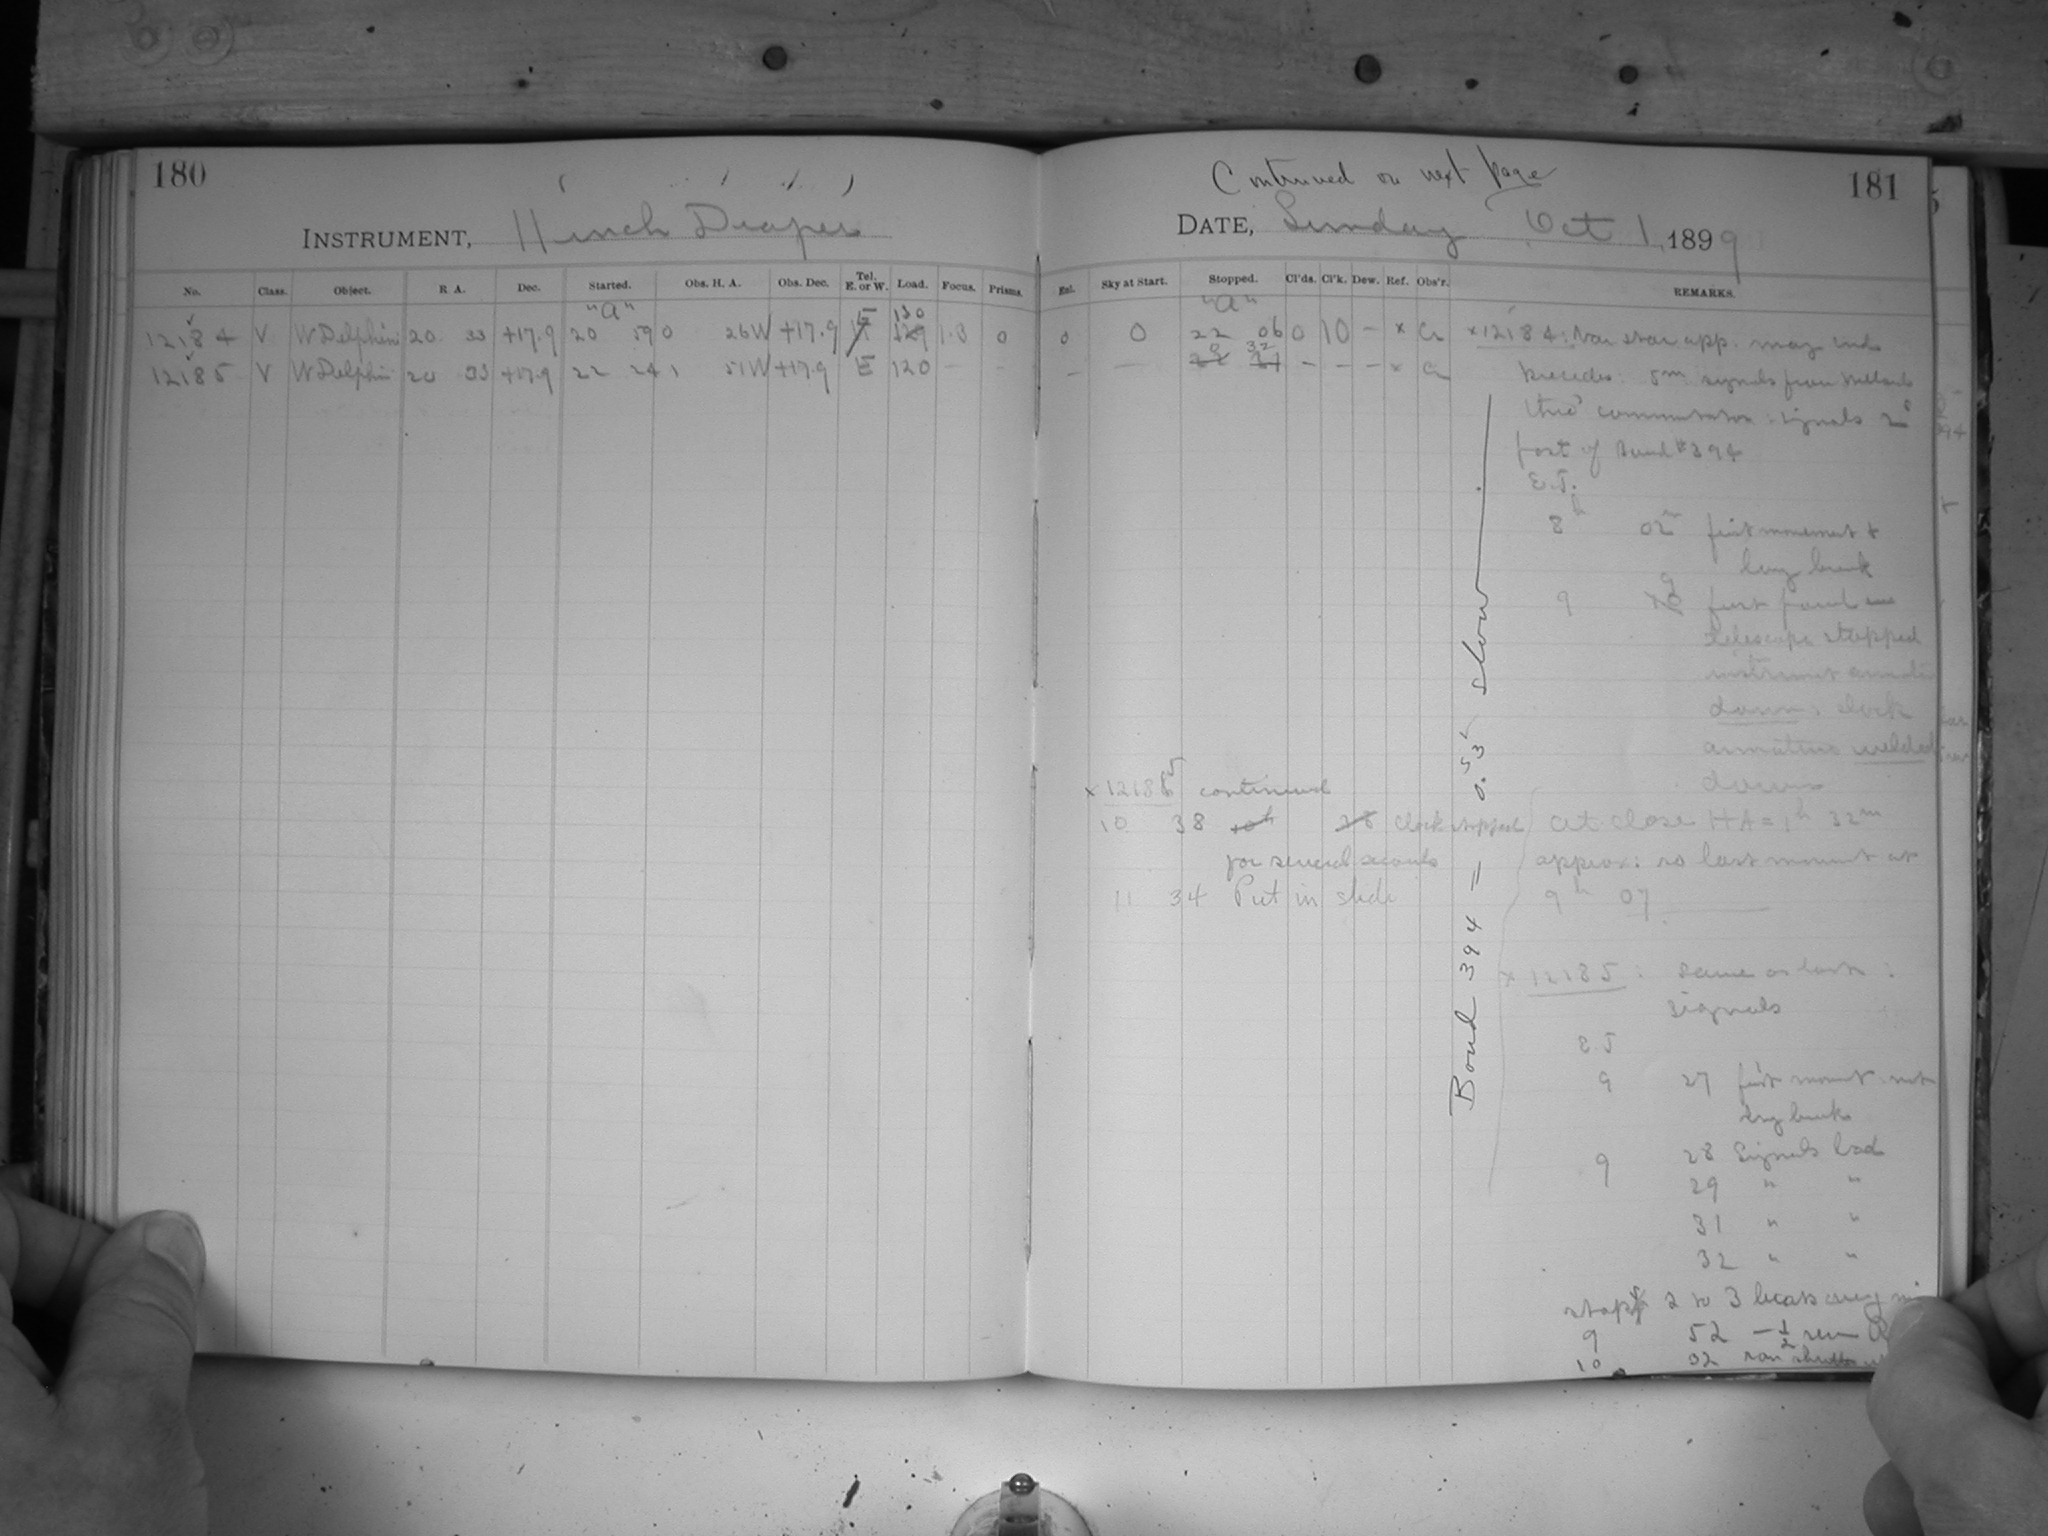 180
INSTRUMENT, 11 inch Draper
No. Class. Object. R A. Dec. Started. Obs. H. A. Obs. Dec. Tel. E. or W. Load. Focus. Prisms.
"a" 130
12184 V W Delphin 20 33 +17.9 20 59 0 26W +17.9 E 129 1.3 0
12185 V W Delphin 20 33 +17.9 22 24 1 51W +17.9 E 120 - -
Continued on next page
181
DATE, Sunday Oct 1, 1899
Ext. Sky at Start. Stopped. Cl'ds. Cl'k. Dew. Ref. Obs'r. REMARKS.
"a"
0 0 22 06 0 10 - x
- - 0 32 - - - x
x12184: Var star app. may
precedes: 5m signals from
thro' commutator: signals 2s
fast of Bond #394
E.T.
8h 02m first movement &
long break
9 9 first found
telescope stopped
down: clock
welded
down
at close HA = 1h 32m
approx: so last movement at
9h 07
x12185 continued
10 38 clock stopped
for several seconds
11 34 Put in slide
Bond 394 = 0.53s slow
x12185: same as last:
signals
E T
9 27 first movement not
long breaks
9 28 Signals bad
29 " "
31 " "
32 " "
2 to 3 breaks every
9 52 - 1/2
10 32 ran